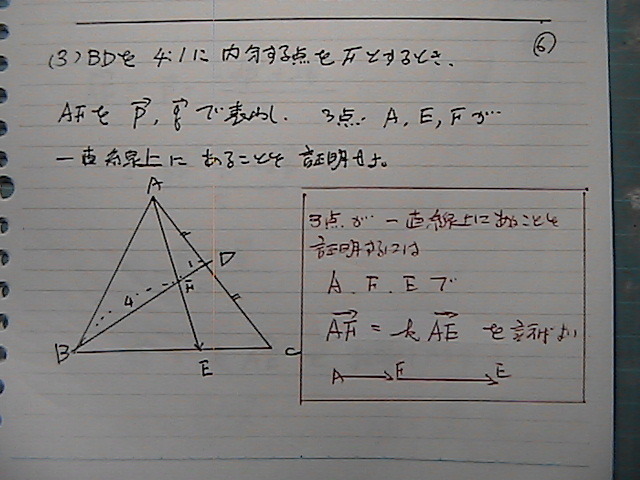 (3) BDを 4:1に 内分する点を Fとするとき、
⑥
AFを p⃗, q⃗で表わし、 3点 A, E, Fが
一直線上に あることを 証明せよ。
A
D
1
F
4
B
E
C
3点が 一直線上にあることを
証明するには
A、F、Eで
AF⃗ = k AE⃗ を示せばよい
A F E